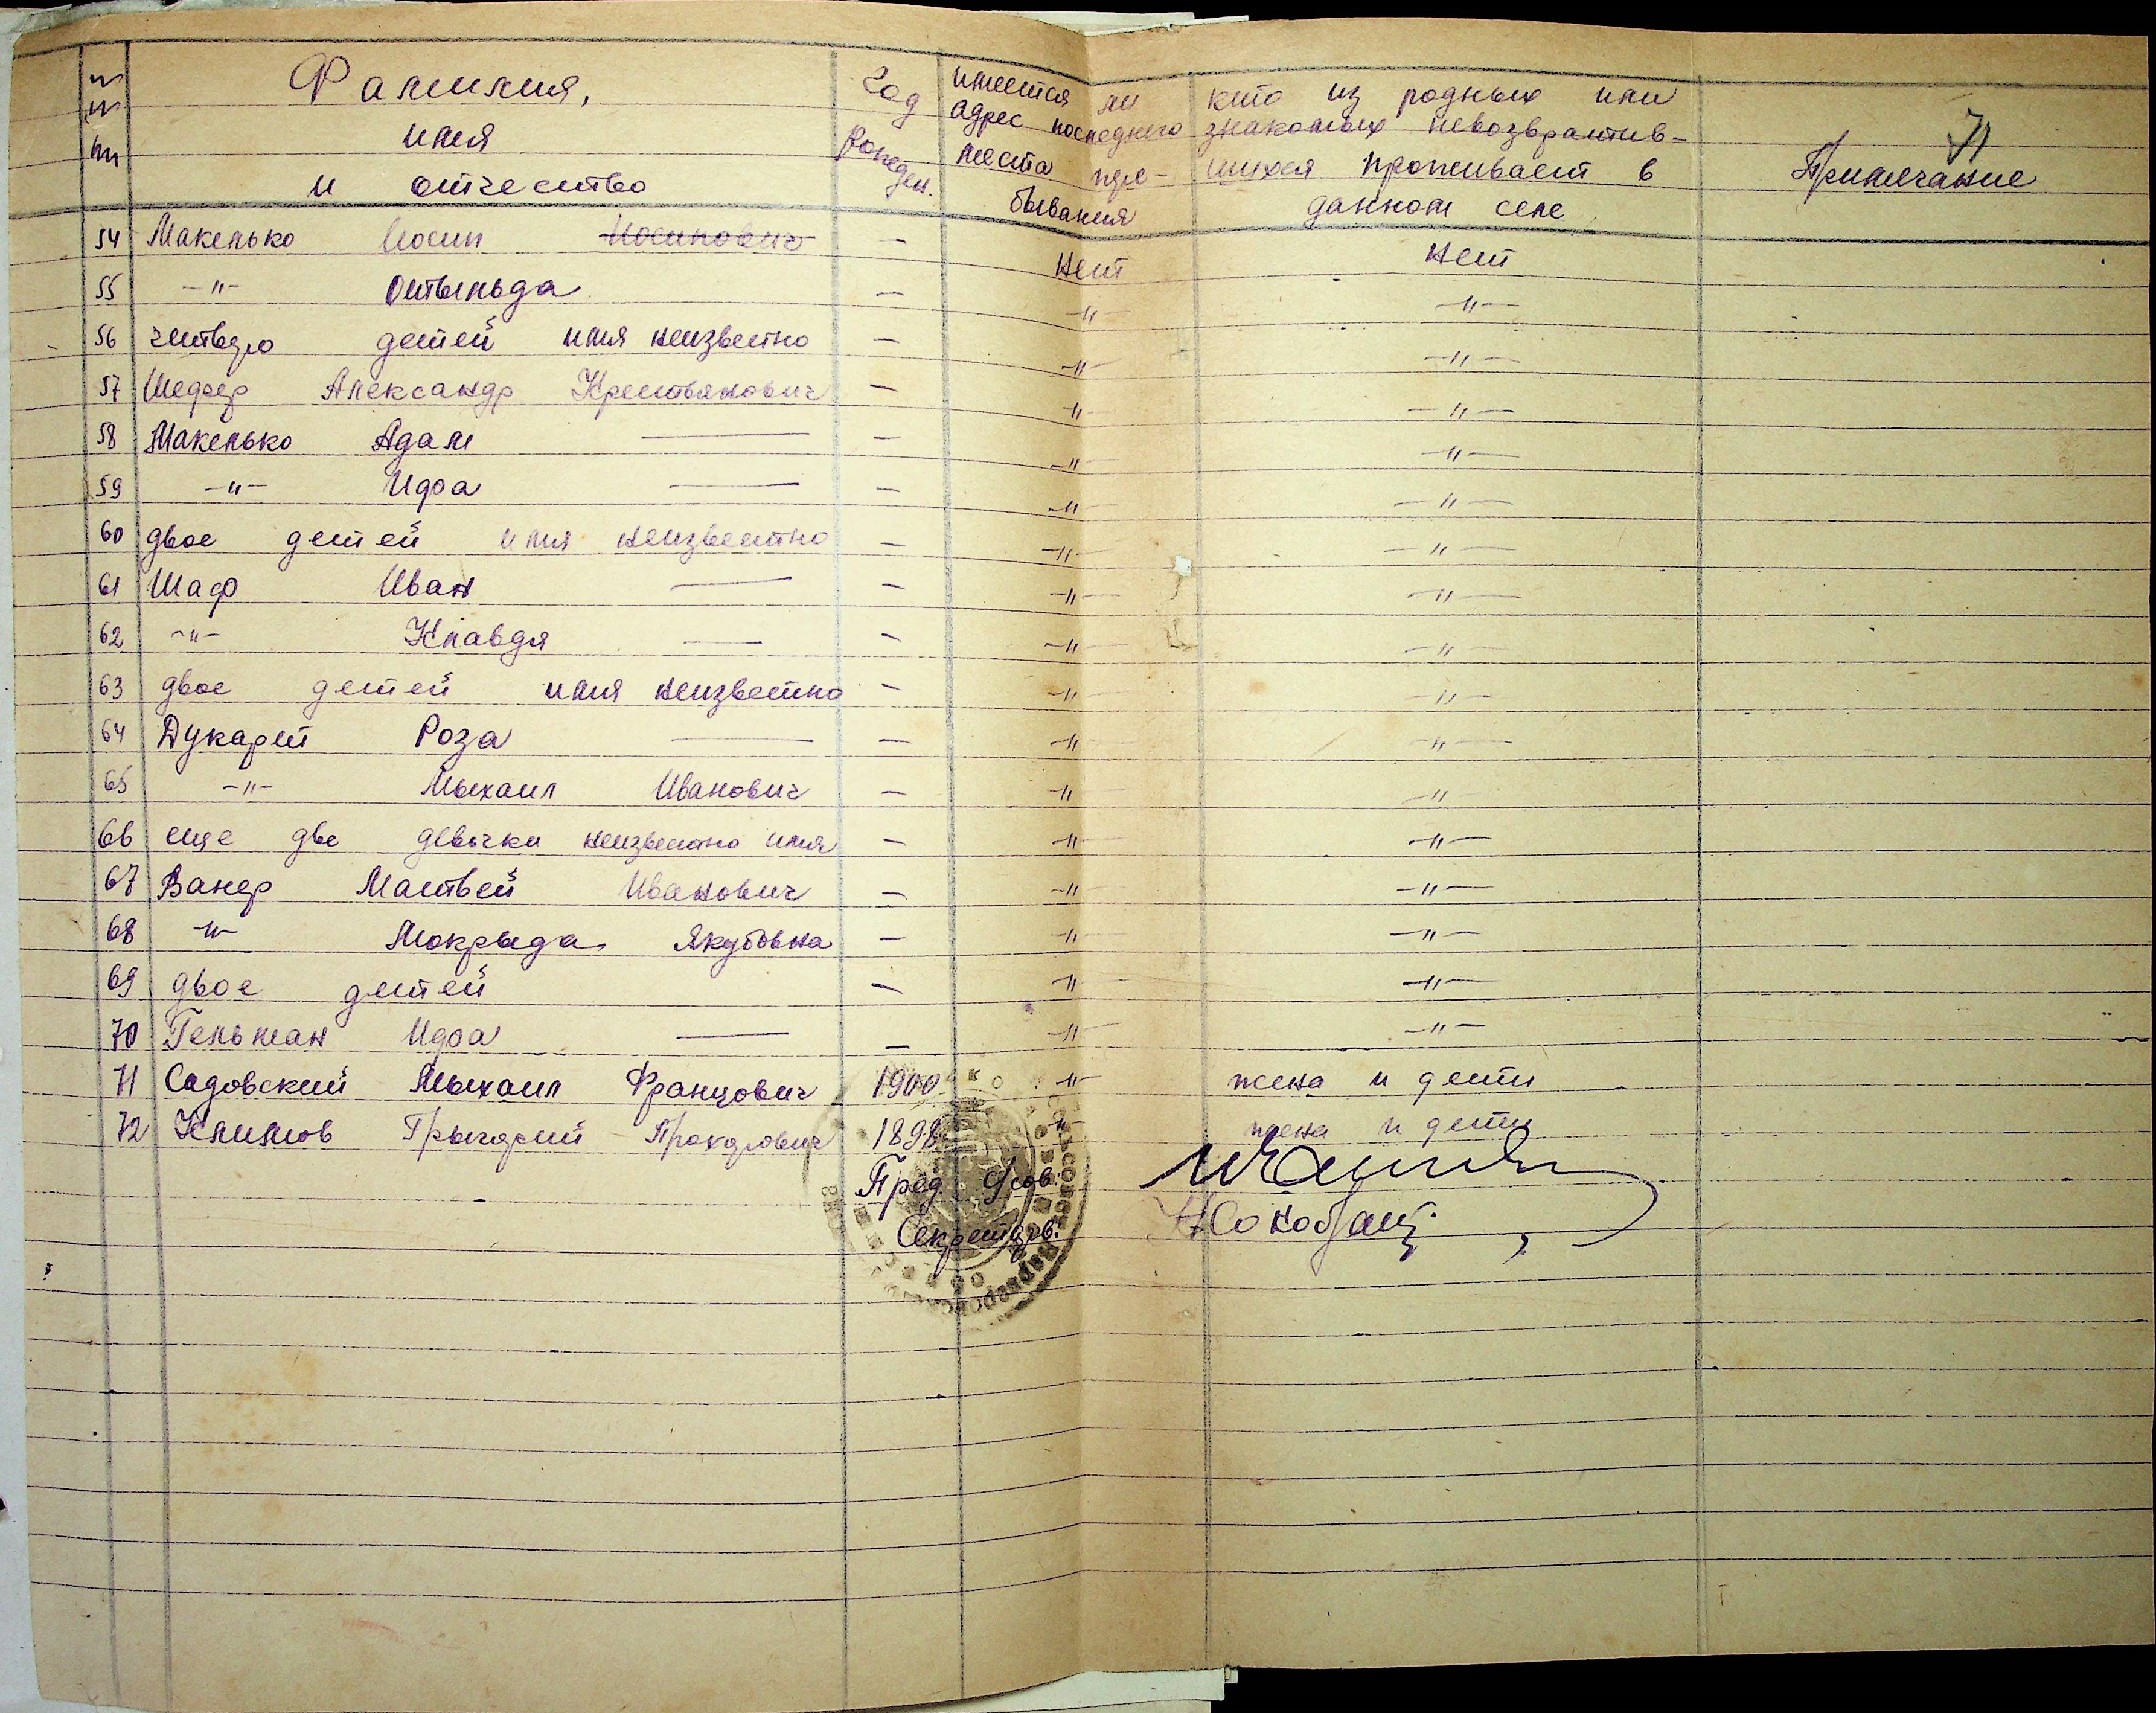 № № пп Фамилия, имя и отчество Год рожден. имеется ли адрес последнего места пребывания кто из родных или знакомых невозвратившихся проживает в данном селе Примечание
71
54 Макелько Иосип Иосипович — нет нет
55 -"- Отыльда — -"- -"-
56 четверо детей имя неизвестно — -"- -"-
57 Шефер Александр Крестьянович — -"- -"-
58 Макелько Адам — — -"- -"-
59 -"- Идоа — — -"- -"-
60 двое детей имя неизвестно — -"- -"-
61 Шаф Иван — — -"- -"-
62 -"- Клавдя — — -"- -"-
63 двое детей имя неизвестно — -"- -"-
64 Дукарт Роза — — -"- -"-
65 -"- Мыхаил Иванович — -"- -"-
66 еще две девочки неизвестно имя — -"- -"-
67 Ванер Матвей Иванович — -"- -"-
68 -"- Мокрыда Якубовна — -"- -"-
69 двое детей — -"- -"-
70 Гельман Идоа — — -"- -"-
71 Садовский Мыхаил Францович 1900 -"- жена и дети
72 Климов Грыгорий Прохорович 1898 -"- жена и дети
Пред. с/сов.
Секретарь: